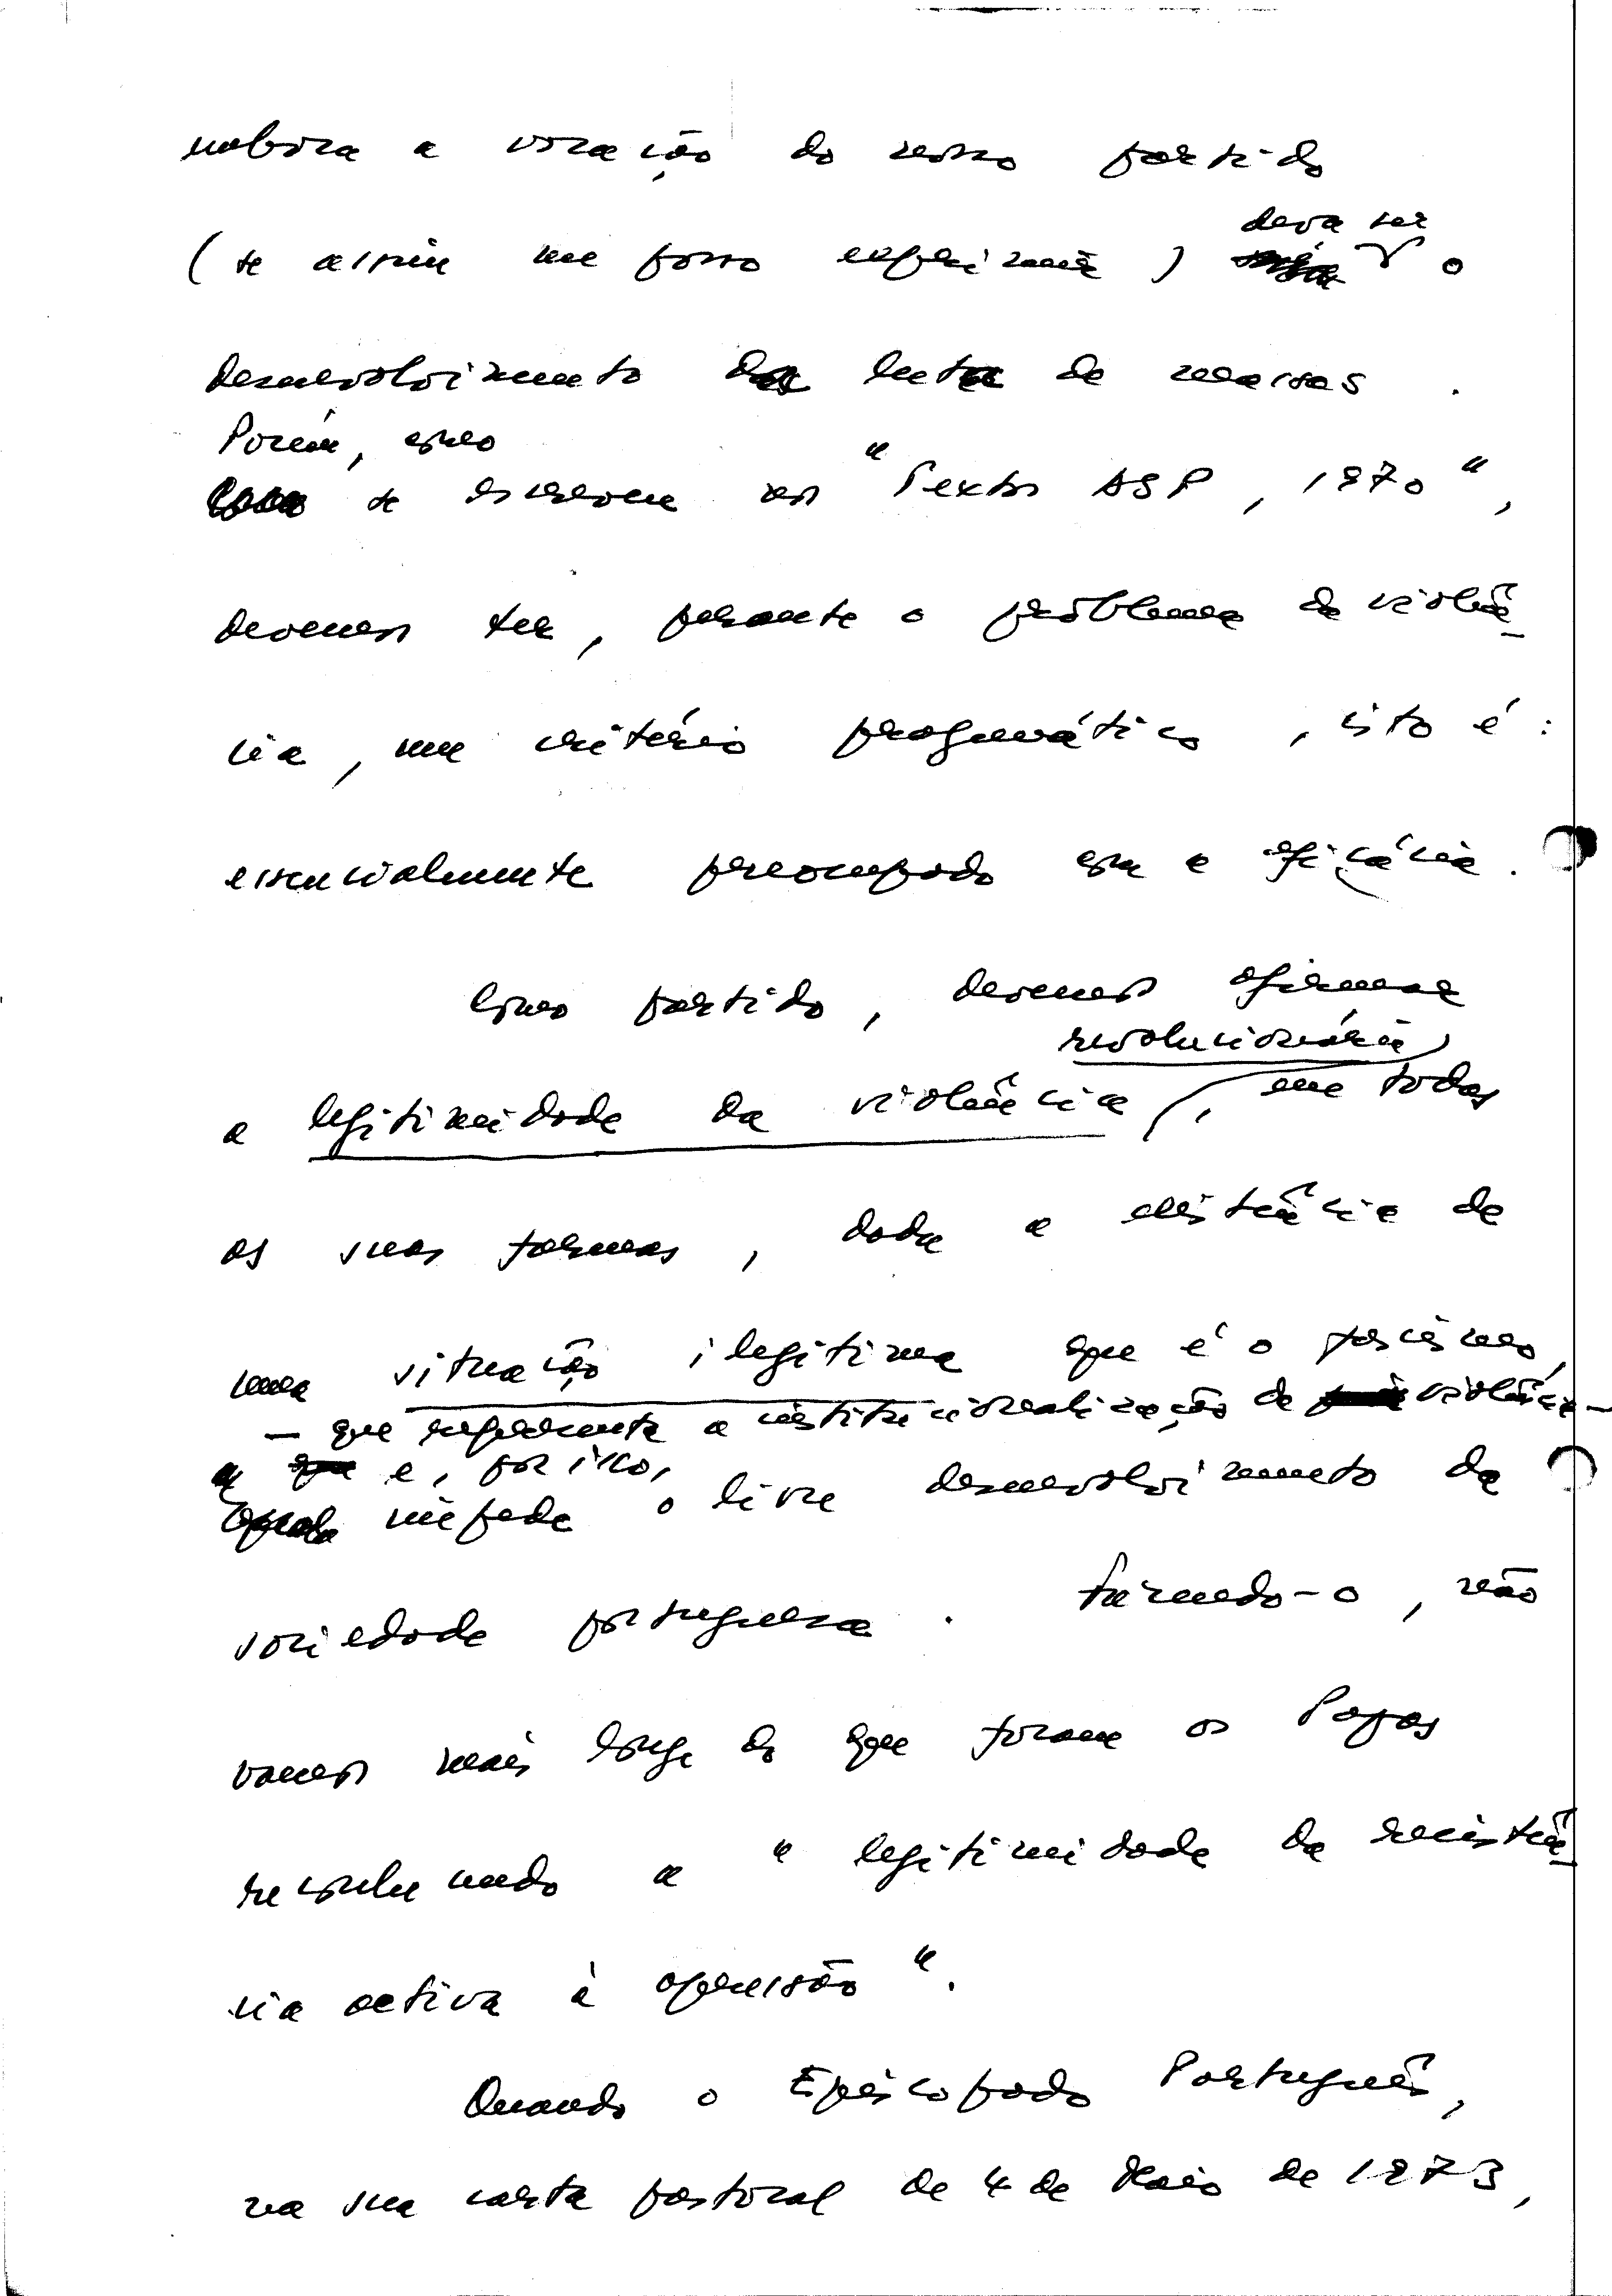 embora a vocação do nosso partido
deva ser
(se assim me posso exprimir) o
desenvolvimento da luta de massas.
Porém, como
se escreveu nos "Textos ASP, 1970",
devemos ter, perante o problema da violên_
cia, um critério pragmático, isto é:
essencialmente preocupado com a eficácia.
Como partido, devemos afirmar
revolucionária
a legitimidade da violência, em todas
as suas formas, dada a existência de
uma situação ilegítima que é o fascismo,
- que representa a institucionalização da violência -
e, por isso,
impede o livre desenvolvimento da
sociedade portuguesa. Fazendo-o, não
vamos mais longe do que foram os Papas
reconhecendo a "legitimidade da resistên_
cia activa à opressão".
Quando o Episcopado Português,
na sua carta pastoral de 4 de Maio de 1973,